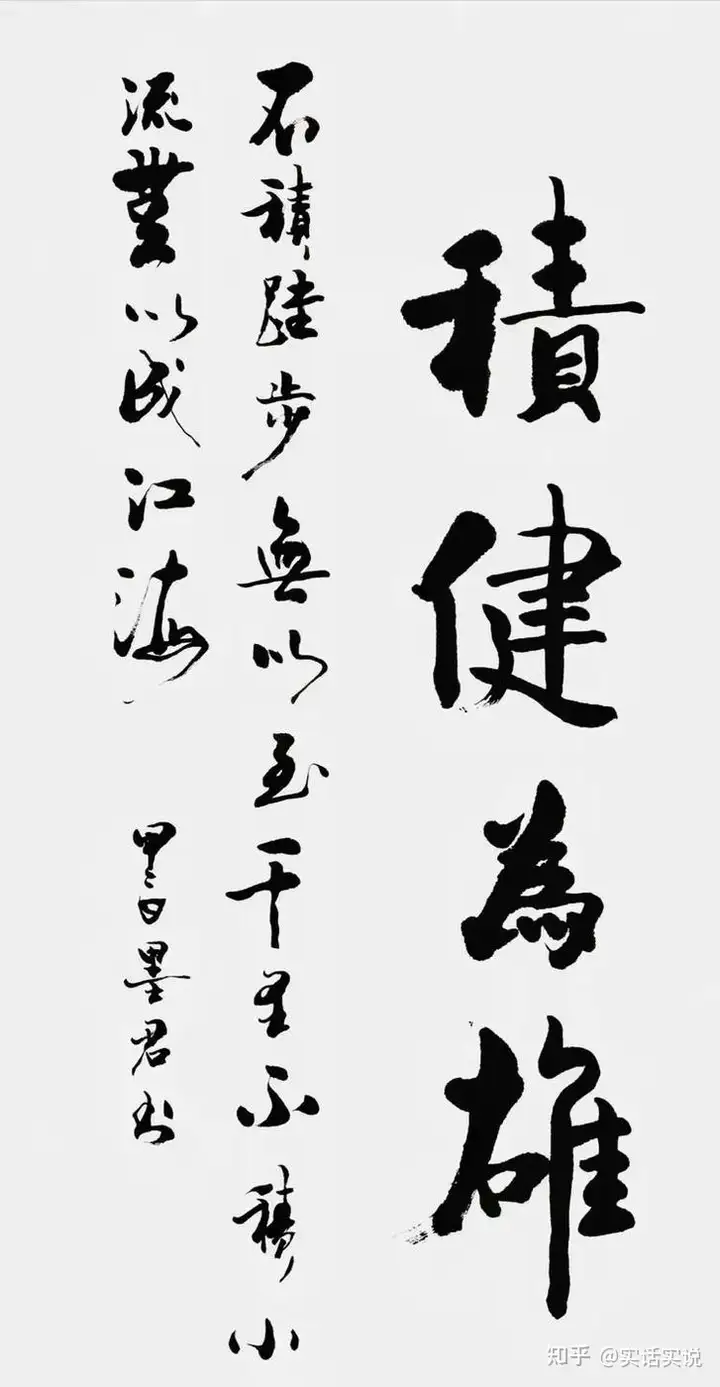 積健為雄
不積跬步無以至千里不積小
流無以成江海
甲 墨君书
知乎 @实话实说